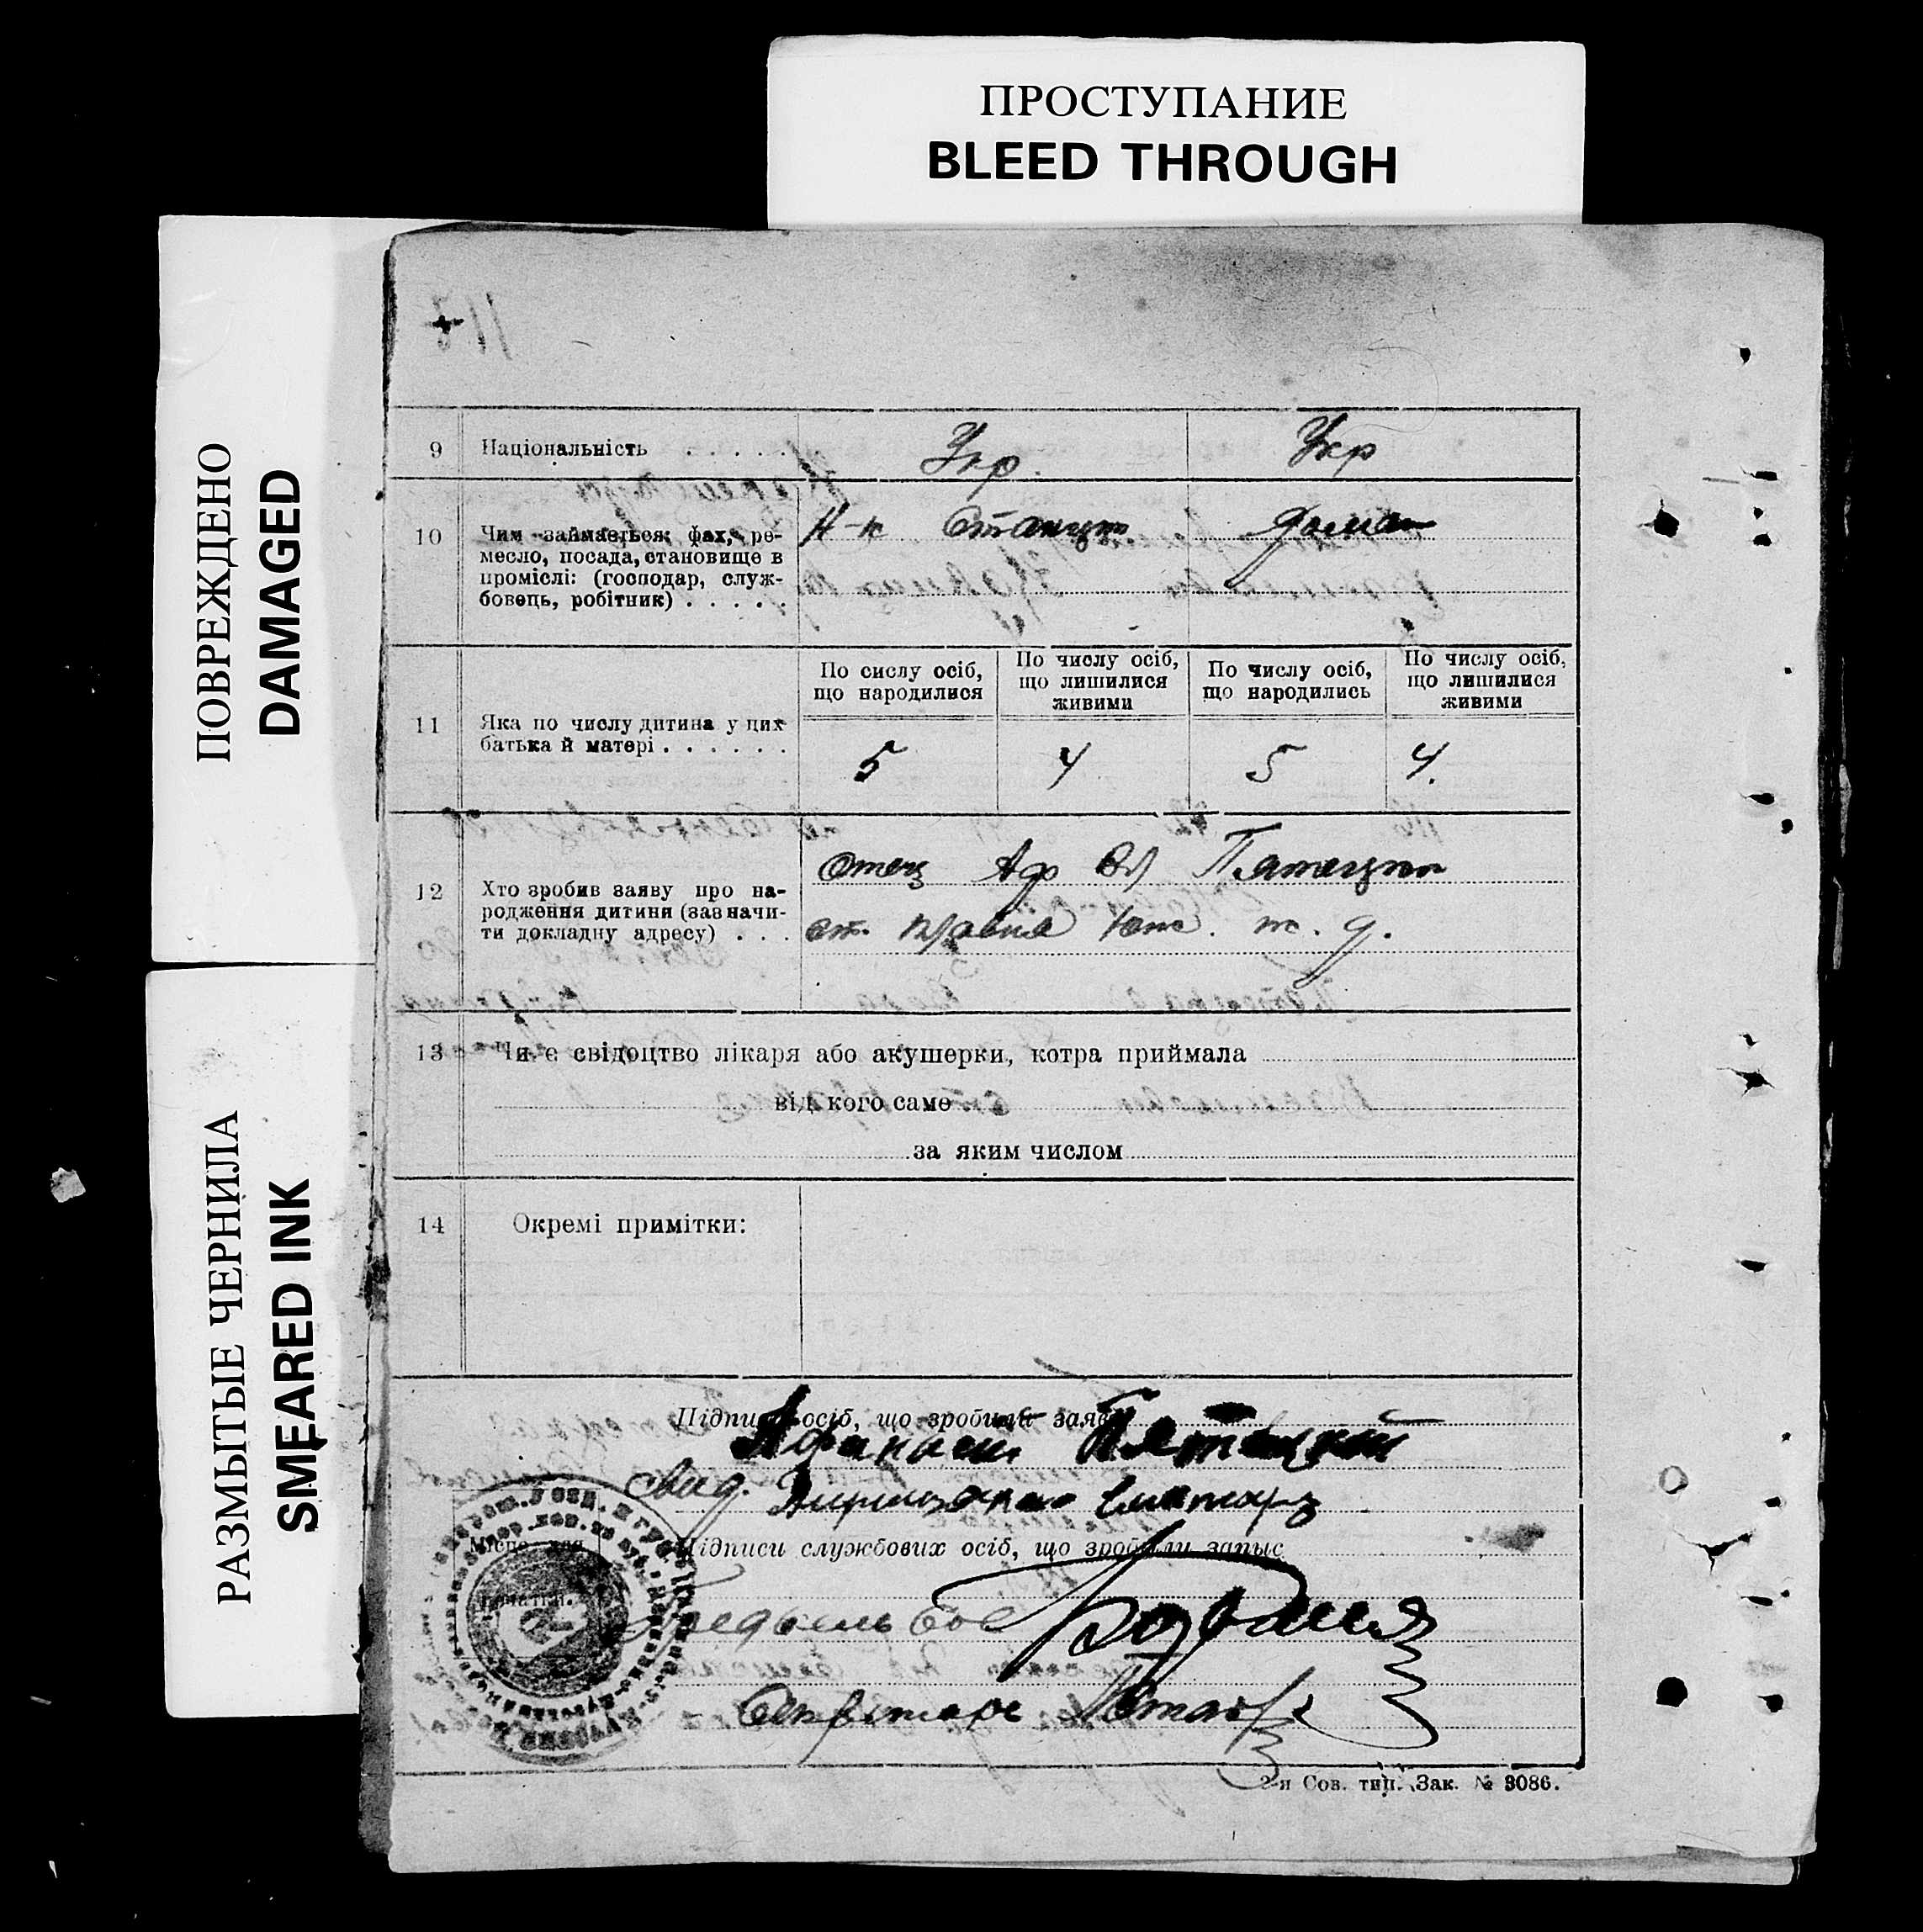 ПРОСТУПАНИЕ
BLEED THROUGH
ПОВРЕЖДЕНО
DAMAGED
РАЗМЫТЫЕ ЧЕРНИЛА
SMEARED INK
9 Національність . . . . . Укр. Укр
10 Чим займається: фах, ре-
месло, посада, становище в
проміслі: (господар, служ-
бовець, робітник) . . . . .
Н-к Станции. дома
11 Яка по числу дитина у цих
батька й матері . . . . . .
По сислу осіб,
що народилися
По числу осіб,
що лишилися
живими
По числу осіб,
що народились
По числу осіб,
що лишилися
живими
5 4 5 4.
12 Хто зробив заяву про на-
родження дитини (зазначи-
ти докладну адресу) . . .
Отец Аф Вл Пятецкий
ст. Юж. ж. д.
13 Чи є свідоцтво лікаря або акушерки, котра приймала
від кого саме
за яким числом
14 Окремі примітки:
Підписи осіб, що зробили заяву
Афанасий Пятецкий
Свид.
Підписи службових осіб, що зробили запис
Місце для
печатки.
Секретарь
2-я Сов. тип. Зак. № 3086.